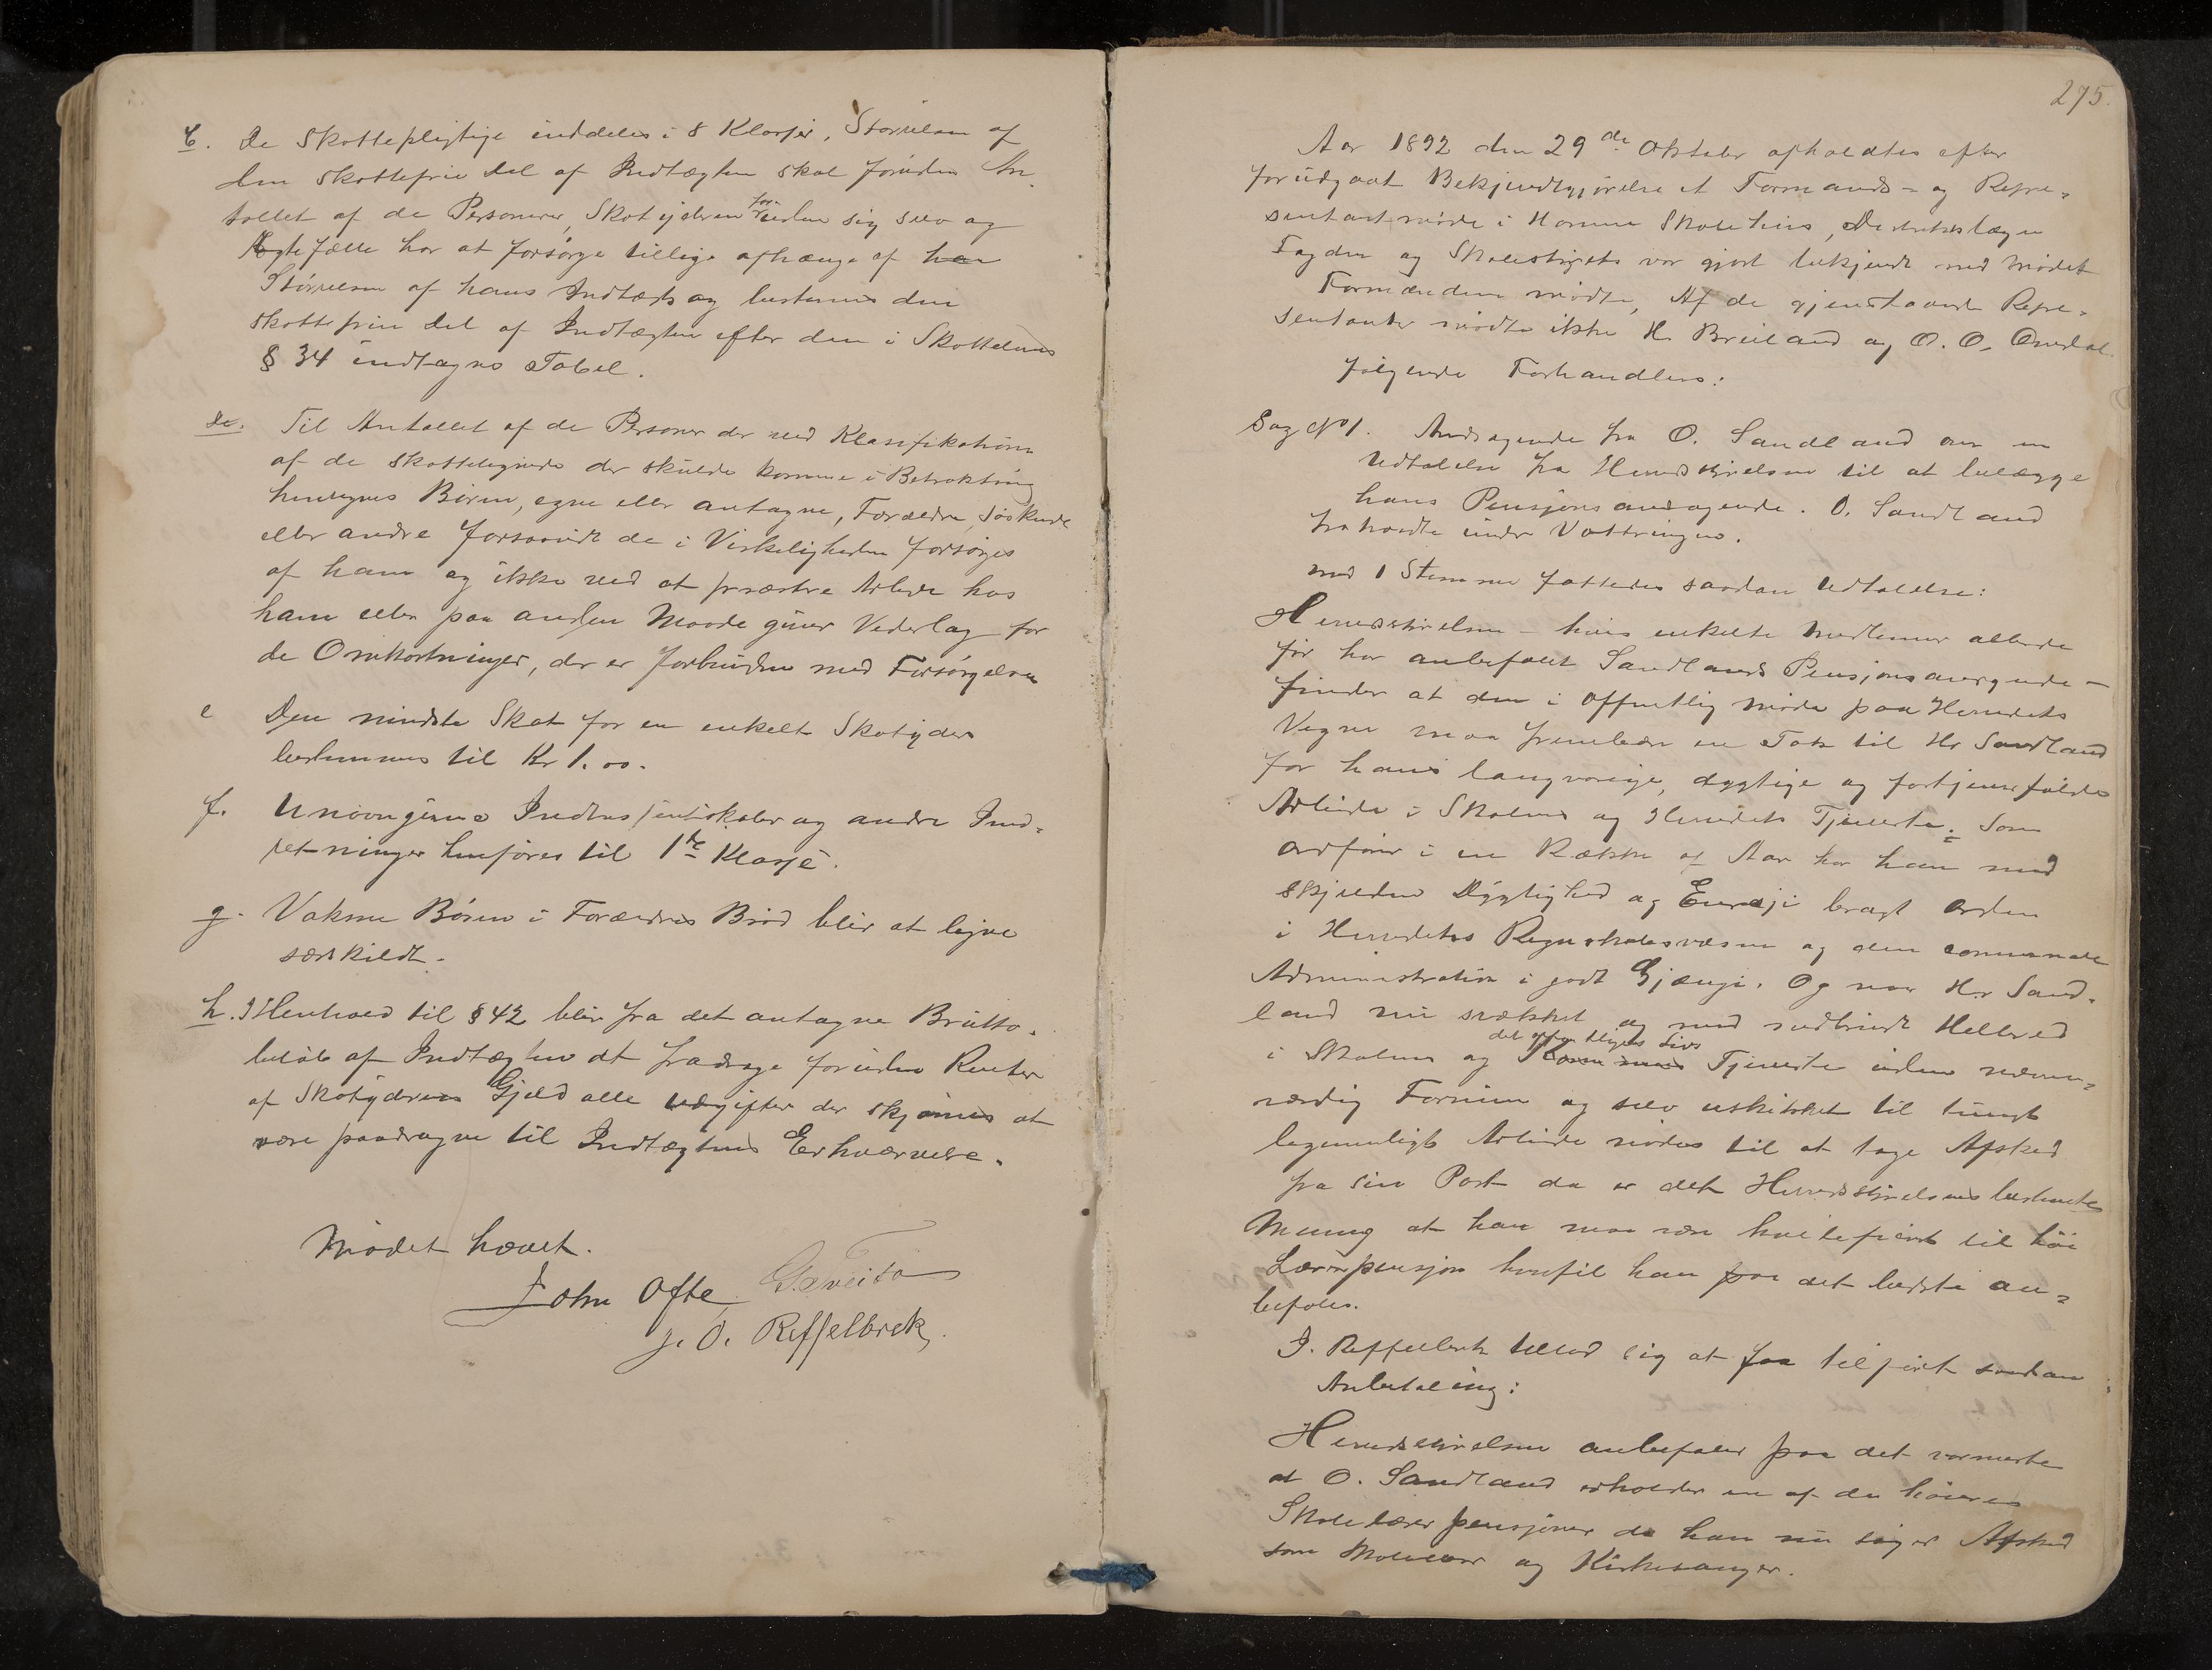 C. De Skattepligtige inddeles i 8 Klasser. Størrelsen af
den skattefrie Del af Indtægten skal foruden An-
tallet af de Personer, Skatyderen foruden sig selv og
Ægtefælle har at forsørge tillige afhænge af han
Størrelsen af hans Indtægt og bestemmes den
skattefrie Del af Indtægten efter den i Skattelovens
§ 34 indtagne Tabel.
Til Antallet af de Personer der ved Klassifikationen
af de skattelignede der skulde komme i Betraktning
henregnes Børn, egne eller antagne, Forældre, Søskende
eller andre forsaavidt de i Virkeligheden forsørges
af ham og ikke ved at præstere Arbeide hos
ham eller paa anden Maade giver Vederlag for
de Omkostninger, der er forbunden med Forsørgelsen
e Den mindste Skat for en enkelt Skatyder
bestemmes til Kr 1.00.
f. Umyndige og andre Ind-
retninger henføres til 1ste Klasse.
g. Voksne Børn i Forældres Brød blir at ligne
særskildt.
h. I Henhold til § 42 blir fra det antagne Brutto-
beløb af Indtægten at fradrage foruden Renter
af Skatyderens Gjæld alle Udgifter der skjønnes at
være paadragne til Indtægtens Erhvervelse.
Mødet hævet.
John Ofte G. Tveito
J. O. Reffelbrek
275.
Aar 1892 den 29de Oktober afholdtes efter
forudgaaet Bekjendtgjørelse et Formands- og Repre-
sentantmøde i Skolehus, Distriktslægen
Fogden og Skolestyret var gjort bekjendt med Mødet
Formændene mødte, Af de gjenstaaende Repre-
sentanter mødte ikke H. Breiland og O. O. Omdal.
følgende Forhandlers:
Sag No 1. Andragende fra O. Sandland om en
Udtalelse fra Herredsstyrelsen til at belægge
hans Pensjonsandragende. O. Sandland
fratraadte under Voteringen.
med Stemmer fattedes saadan Udtalelse:
Herredsstyrelsen – hvis enkelte Medlemmer allerede
før har anbefalet Sandlands Pensjonsandragende –
finder at den i offentlig Møde paa Herredets
Vegne maa frembære en Tak til Hr Sandland
for hans langvarige, dygtige og fortjenstfulde
Arbeide i Skolens og Herredets Tjeneste. Som
Ordfører i en Række af Aar har han med
skjelden Dygtighed og Energi bragt Orden
i Herredets Regnskabsvæsen og den communale
Administration i godt Gjænge. Og naar Hr Sand-
land nu svækket og med nedbrudt Helbred
i Skolens og det offentliges Livs Tjeneste uden nævne-
værdig Formue og selv uskikket til tungt
legemligt Arbeide nødes til at tage Afsked
fra sin Post da er det Herredsstyrelsens bestemte
Mening at han maa være kvalificeret til høi
Lærerpensjon hvortil han paa det bedste an-
befales.
J. Reffelbrek tillod sig at faa tilført saadan
Anbefaling:
Herredsstyrelsen anbefaler paa det varmeste
at O. Sandland erholder en af de høieres
Skolelærerpensjoner da han nu søger Afsked
som Skolelærer og Kirkesanger.